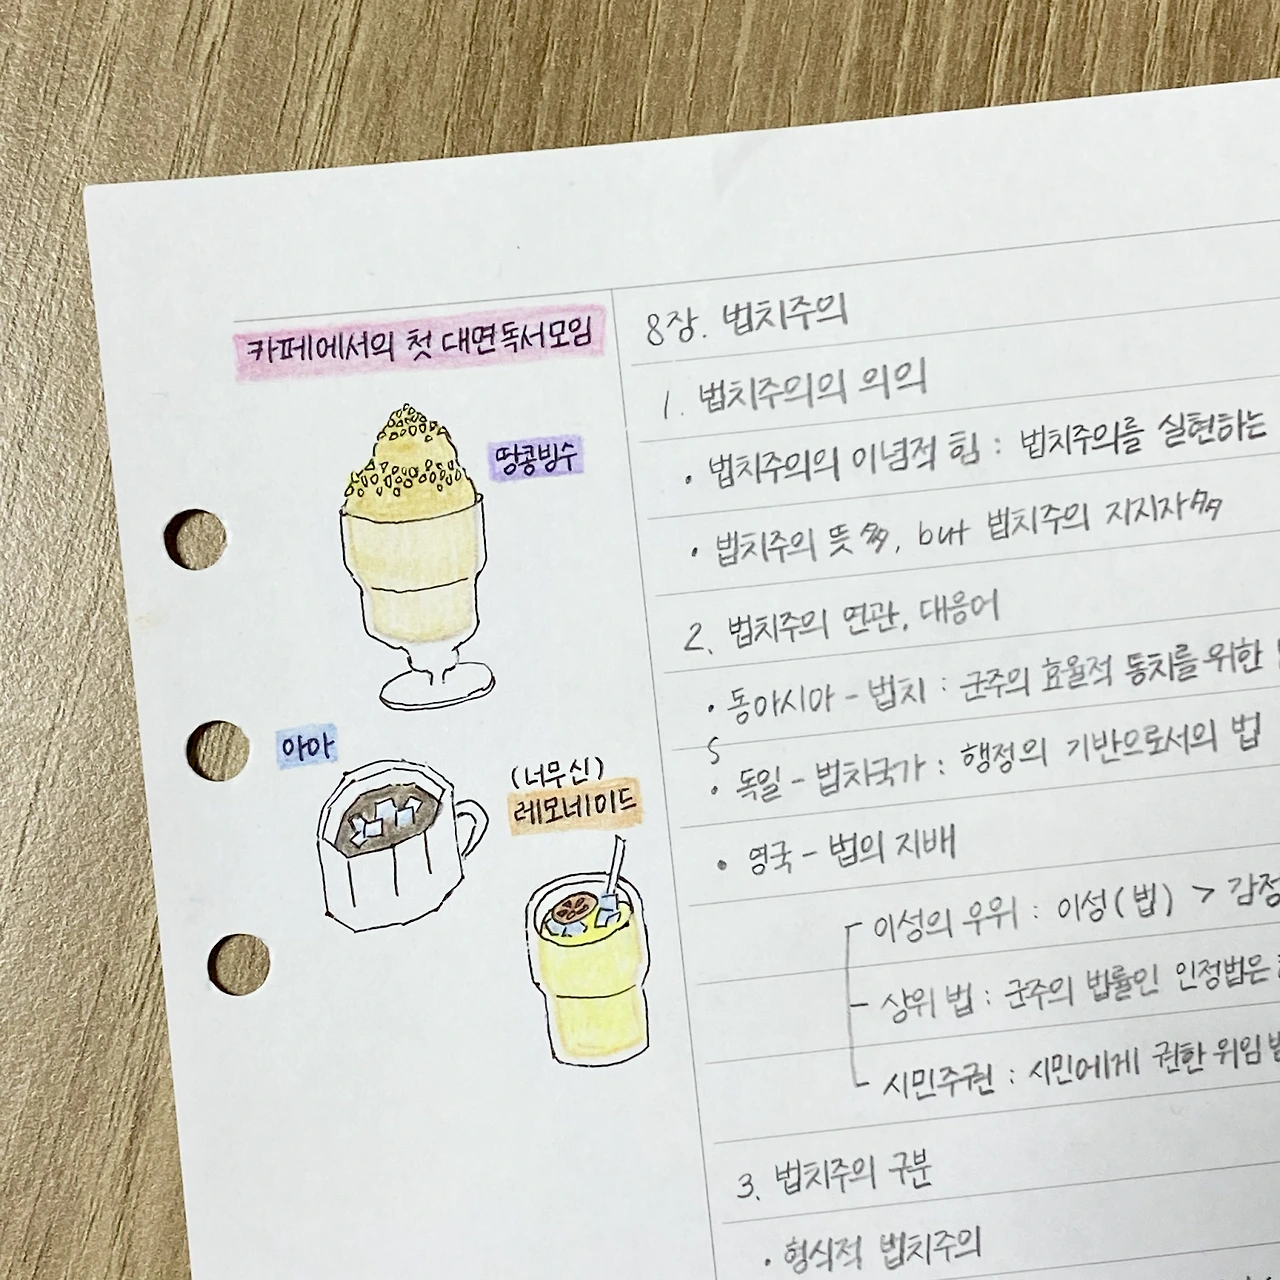 카페에서의 첫 대면독서모임
땅콩빙수
아아
(너무신)
레모네이드
8장. 법치주의
1. 법치주의의 의의
• 법치주의의 이념적 힘 : 법치주의를 실현하는
• 법치주의 뜻多, but 법치주의 지지자多
2. 법치주의 연관, 대응어
• 동아시아 - 법치 : 군주의 효율적 동치를 위한
S
• 독일 - 법치국가 : 행정의 기반으로서의 법
• 영국 - 법의 지배
이성의 우위 : 이성(법) > 감정
상위 법 : 군주의 법률인 인정법은
시민주권 : 시민에게 권한 위임
3. 법치주의 구분
• 형식적 법치주의